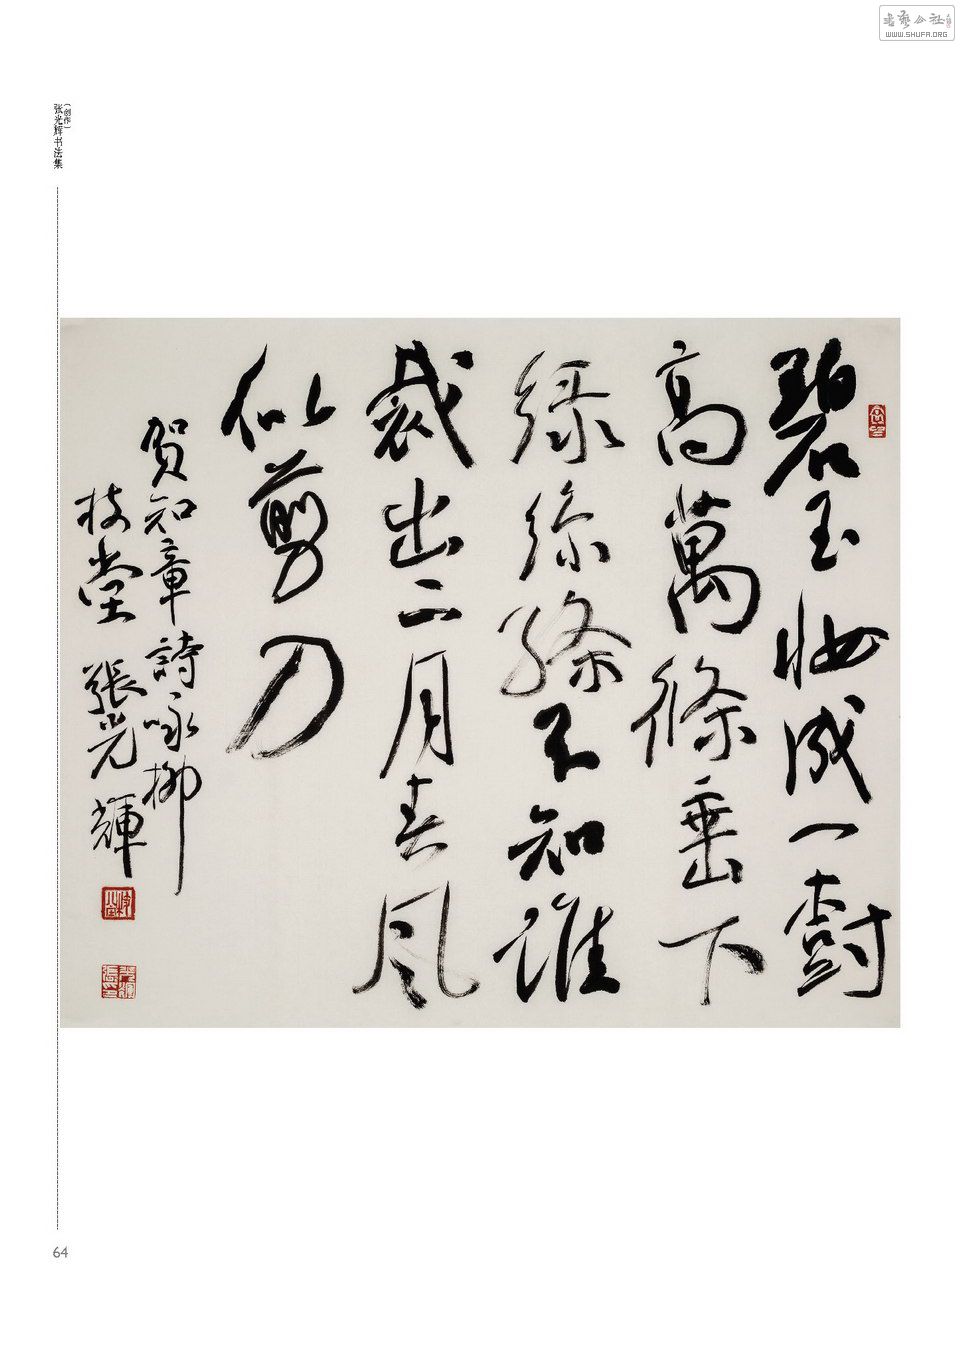 書藝公社
WWW.SHUFA.ORG
张光辉书法集
(创作)
碧玉妝成一樹
高萬條垂下
綠絲縧不知誰
裁出二月春风
似剪刀
賀知章詩咏柳
枝堂 張光輝
64